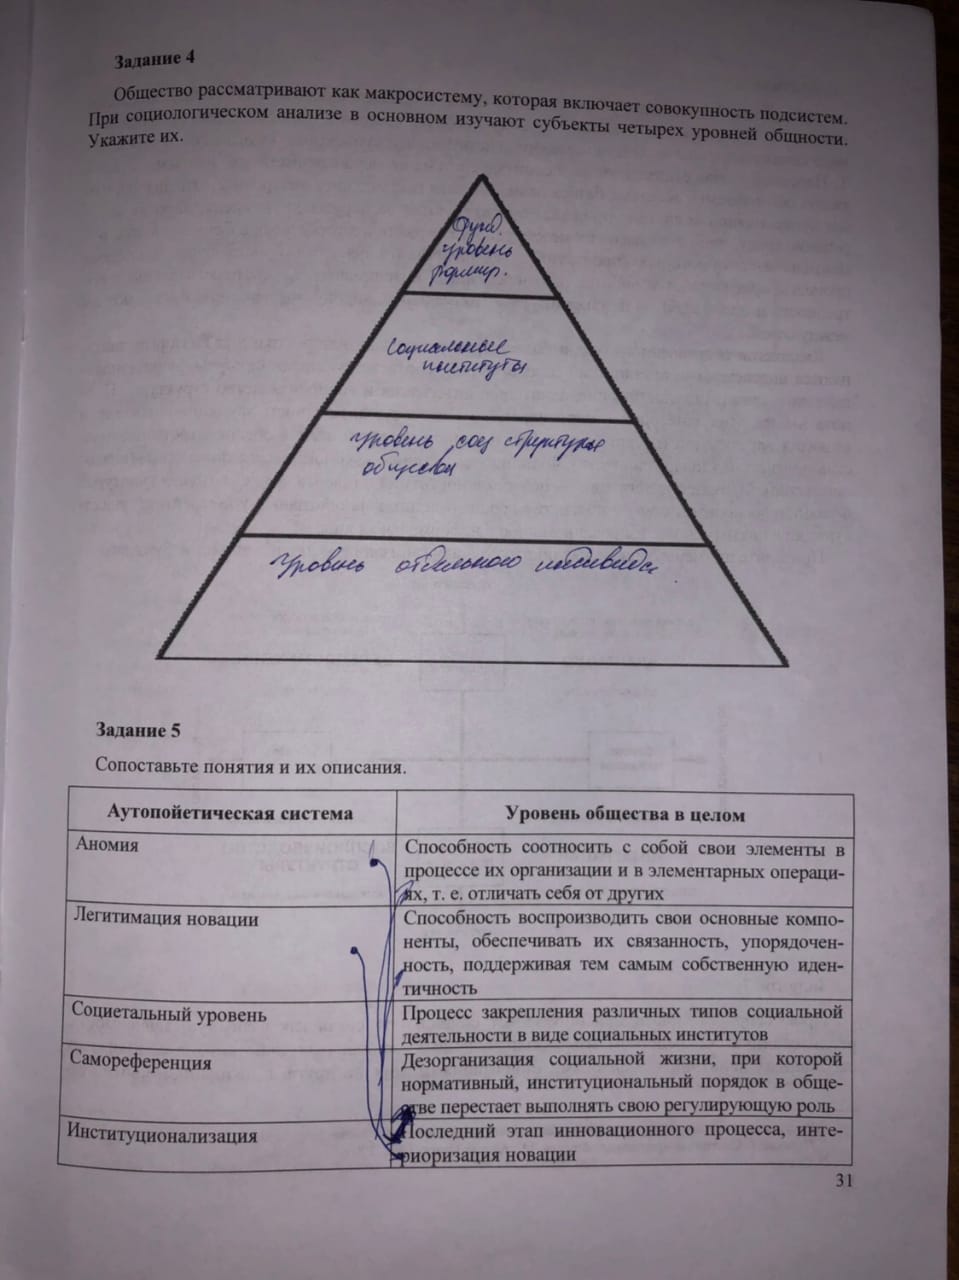 Задание 4
Общество рассматривают как макросистему, которая включает совокупность подсистем.
При социологическом анализе в основном изучают субъекты четырех уровней общности.
Укажите их.
Фунд.
уровень
формир.
Социальные
институты
Уровень соц структуры
общества
Уровень отдельного индивида
Задание 5
Сопоставьте понятия и их описания.
Аутопойетическая система
Уровень общества в целом
Аномия
Способность соотносить с собой свои элементы в
процессе их организации и в элементарных операци-
ях, т. е. отличать себя от других
Легитимация новации
Способность воспроизводить свои основные компо-
ненты, обеспечивать их связанность, упорядочен-
ность, поддерживая тем самым собственную иден-
тичность
Социетальный уровень
Процесс закрепления различных типов социальной
деятельности в виде социальных институтов
Самореференция
Дезорганизация социальной жизни, при которой
нормативный, институциональный порядок в обще-
стве перестает выполнять свою регулирующую роль
Институционализация
Последний этап инновационного процесса, инте-
риоризация новации
31